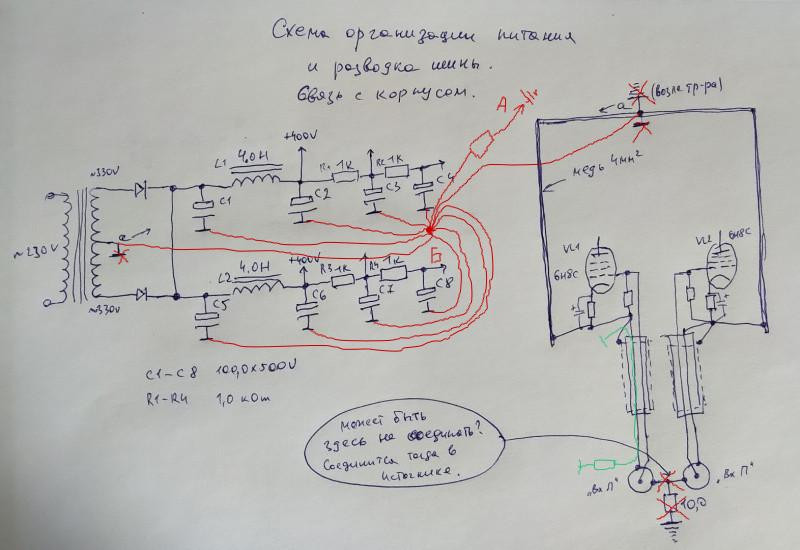 Схема организации питания
и разводка шины.
Связь с корпусом.
А
а
(возле тр-ра)
~330V
L1
4.0H
+400V
R1
1K
R2
1K
C1
C2
C3
C4
медь 4мм²
~230V
а
Б
VL1
6Н8С
VL2
6Н8С
L2
4.0H
+400V
R3
1K
R4
1K
C5
C6
C7
C8
~330V
C1-C8 100,0х500V
R1-R4 1,0 кОм
может быть
здесь не соединять?
Соединится тогда в
источнике.
"Вх Л"
"Вх П"
10,0